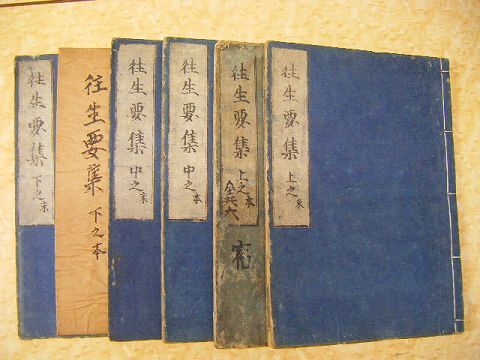 往生要集 上之末
往生要集 上之本
全六
往生要集 中之本
往生要集 中之末
往生要集 下之本
往生要集 下之末